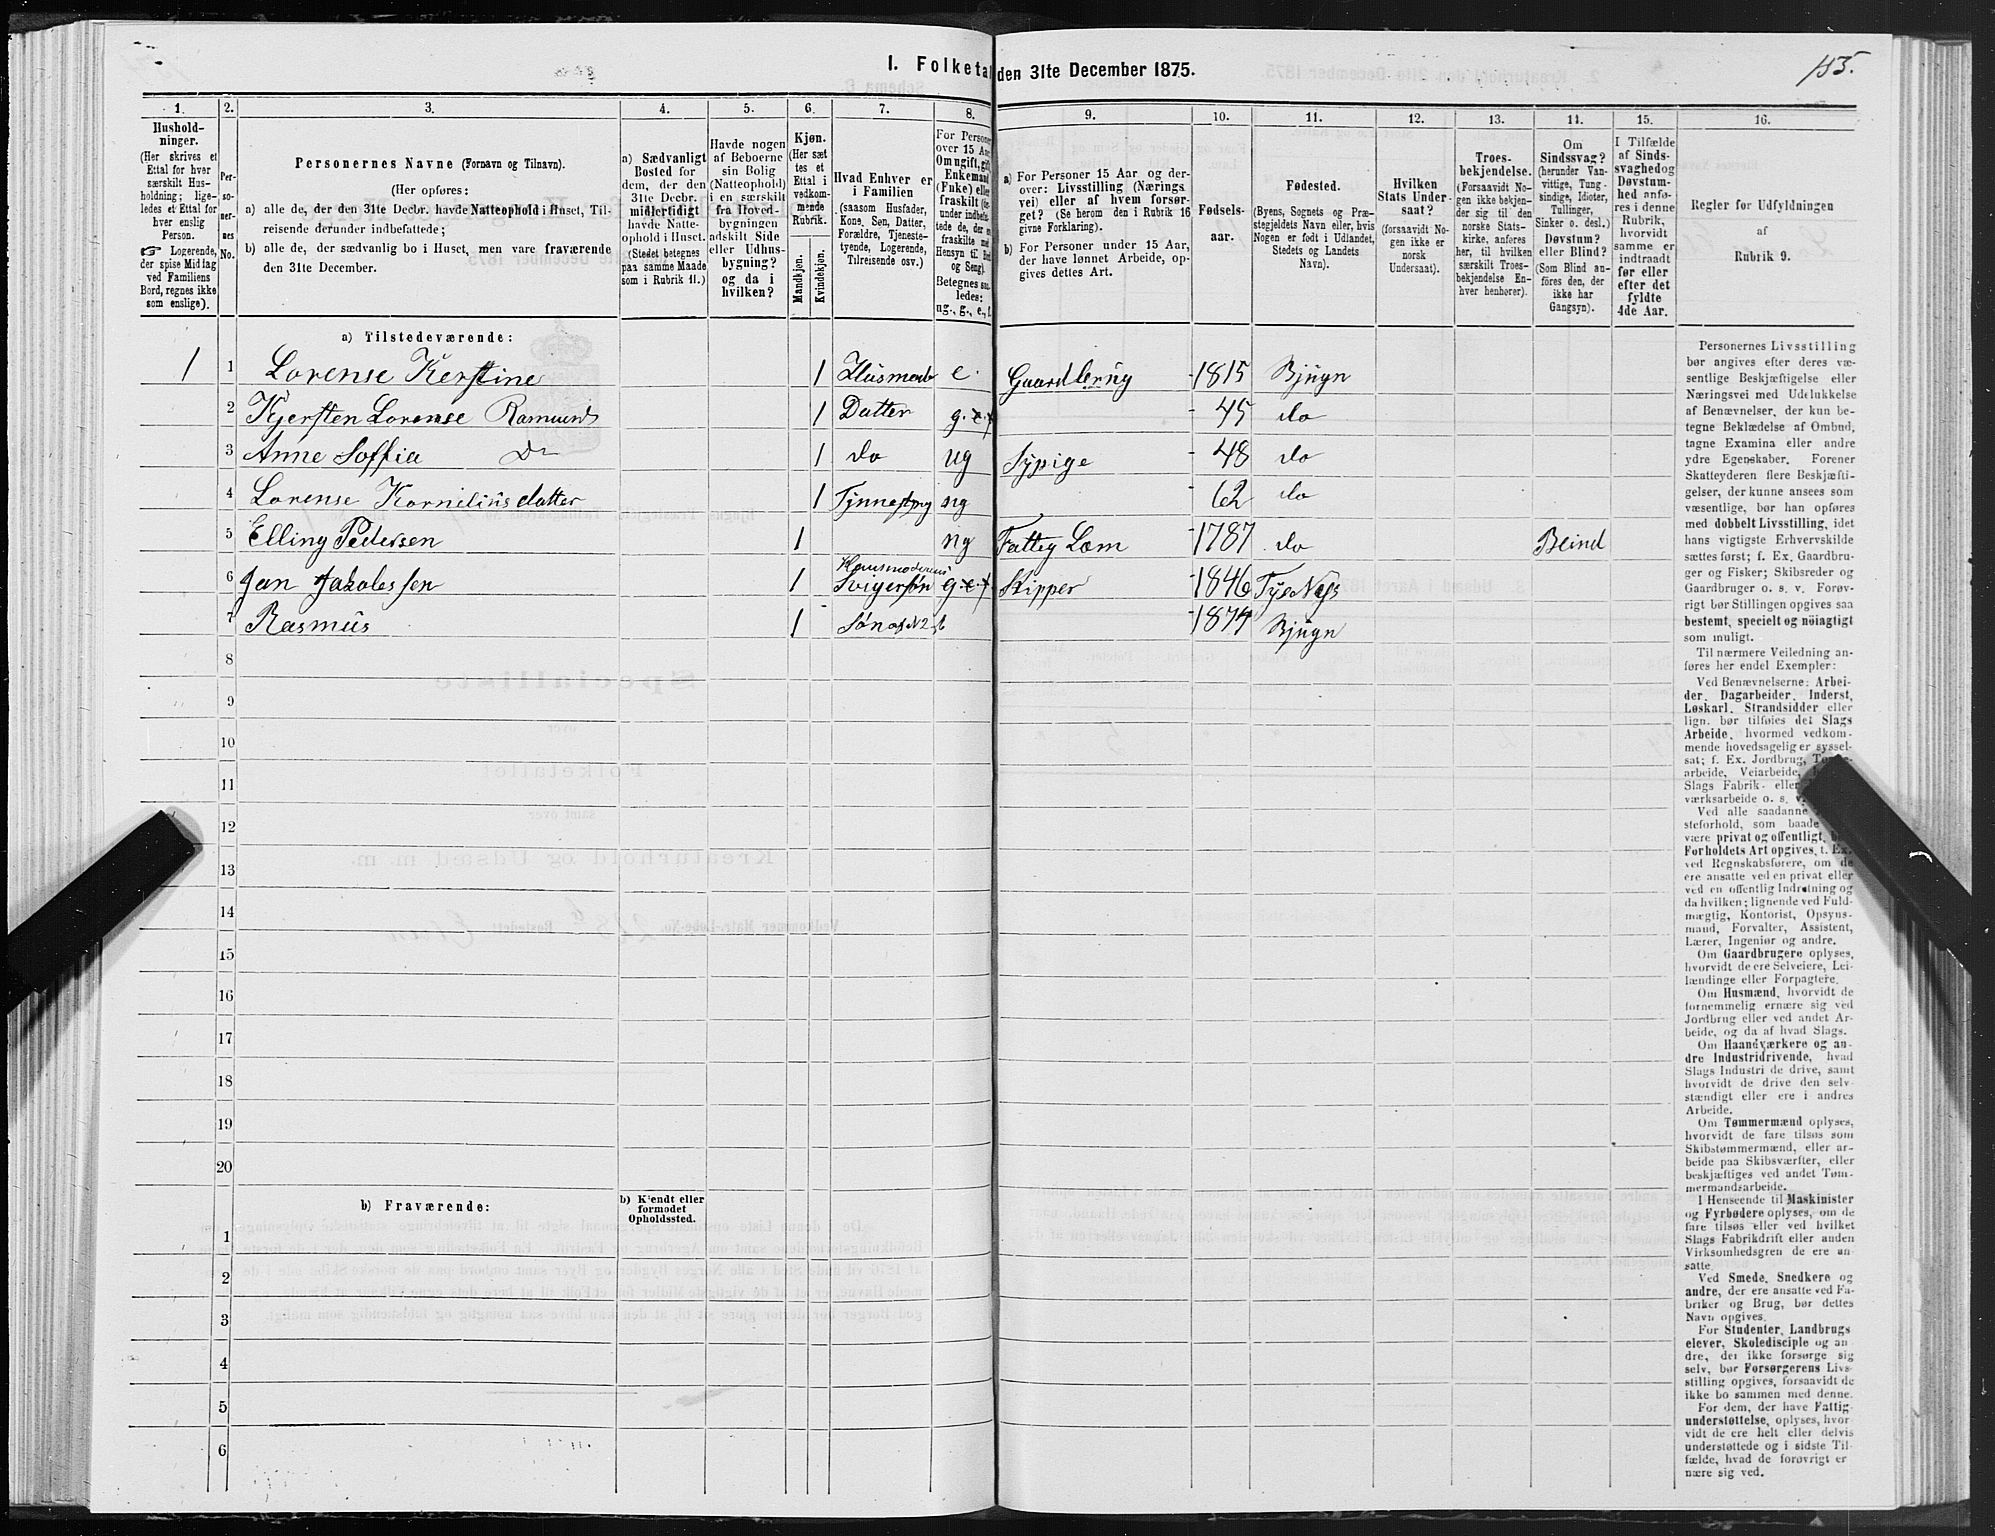 I. Folketal den 31te December 1875.
153.
1.
Hushold-
ninger.
(Her skrives et
Ettal for hver
særskilt Hus-
holdning; lige-
ledes et Ettal for
hver enslig
Person.
☞ Logerende,
der spise Midlag
ved Familiens
Bord, regnes ikke
som enslige).
2.
Per-
so-
ner-
nes
No.
3.
Personernes Navne (Fornavn og Tilnavn).
(Her opføres:
a) alle de, der den 31te Decbr. havde Natteophold i Huset, Til-
reisende derunder indbefattede;
b) alle de, der sædvanlig bo i Huset, men vare fraværende
den 31te December.
4.
a) Sædvanligt
Bosted for
dem, der den
31te Decbr.
midlertidigt
havde Natte-
ophold i Huset.
(Stedet betegnes
paa samme Maade
som i Rubrik 11.)
5.
Havde nogen
af Beboerne
sin Bolig
(Natteophold)
i en særskilt
fra Hoved-
bygningen
adskilt Side
eller Udhus-
bygning?
og da i
hvilken?
6.
Kjøn.
(Her sæt
tes et
Ettal i
vedkom-
mende
Rubrik.
Mandkjøn.
Kvindekjøn.
7.
Hvad Enhver er
i Familien
(saasom Husfader,
Kone, Søn, Datter,
Forældre, Tjeneste-
tyende, Logerende,
Tilreisende osv.)
8.
For Personer
over 15 Aar:
Om ugift, gift,
Enkemand
(Enke) eller
fraskilt
Betegnes saa-
ledes:
ug., g., e., f.
9.
a) For Personer 15 Aar og der-
over: Livsstilling (Nærings
vei) eller af hvem forsør-
get? (Se herom den i Rubrik 16
givne Forklaring).
b) For Personer under 15 Aar,
der have lønnet Arbeide, op-
gives dettes Art.
10.
Fødsels-
aar.
11.
Fødested.
(Byens, Sognets og Præ-
stegjeldets Navn eller, hvis
Nogen er født i Udlandet,
Stedets og Landets
Navn).
12.
Hvilken
Stats Under-
saat?
(forsaavidt No-
gen ikke er
norsk
Undersaat).
13.
Troes-
bekjendelse.
(Forsaavidt No-
gen ikke bekjen-
der sig til den
norske Stats-
kirke, anføres
her, til hvilken
særskilt Troes-
bekjendelse En-
hver henhører).
14.
Om
Sindssvag?
(herunder Van-
vittige, Tung-
sindige, Idioter,
Tullinger,
Sinker o. desl.)
Døvstum?
eller Blind?
(Som Blind an-
føres den, der
ikke har
Gangsyn).
15.
I Tilfælde
af Sinds-
svaghed og
Døvstum-
hed anfø-
res i denne
Rubrik,
hvorvidt
samme er
indtraadt
før eller
efter det
fyldte
4de Aar.
16.
Regler for Udfyldningen
af
Rubrik 9.
a) Tilstedeværende:
1 1 Lorense Kerstine 1 Husmoder e. Gaardbrug 1815 Bjugn
2 Kjersten Lorense Rasmusd 1 Datter g. 45 do
3 Anne Soffia Do 1 do ug Sypige 48 do
4 Lorense Korneliusdatter 1 ug 62 do
5 Elling Pedersen 1 ug Fattig Lem 1787 do Blind
6 Jan Jakobssen 1 Husmoderens Svigersøn g Skipper 1846
7 Rasmus 1 Søn af N 2 1874 Bjugn
8
9
10
11
12
13
14
15
16
17
18
19
20
b) Fraværende:
b) Kjendt eller
formodet
Opholdssted.
1
2
3
4
5
6
Personernes Livsstilling
bør angives efter deres væ-
sentlige Beskjæftigelse eller
Næringsvei med Udelukkelse
af Benævnelser, der kun be-
tegne Beklædelse af Ombud,
tagne Examina eller andre
ydre Egenskaber. Forener
Skatteyderen flere Beskjæfti-
gelser, der kunne ansees som
væsentlige, bør han opføres
med dobbelt Livsstilling, idet
hans vigtigste Erhvervskilde
sættes først; f. Ex. Gaardbru-
ger og Fisker; Skibsreder og
Gaardbruger o. s. v. Forøv-
rigt bør Stillingen opgives saa
bestemt, specielt og nöiagtigt
som muligt.
Til nærmere Veiledning an-
føres her endel Exempler:
Ved Benævnelserne: Arbei-
der, Dagarbeider, Inderst,
Løskarl, Strandsidder eller
lign. bør tilføies det Slags
Arbeide, hvormed vedkom-
mende hovedsagelig er syssel-
sat; f. Ex. Jordbrug,
arbeide, Veiarbeide,
Slags Fabrik- eller
værksarbeide o. s. v.
Ved alle saadanne
steforhold, som baade
være privat og offentligt, bør
Forholdets Art opgives, f. Ex.
ved Regnskabsførere, om de
ere ansatte ved en privat eller
ved en offentlig Indretning og
da hvilken; lignende ved Fuld-
mægtig, Kontorist, Opsyns-
mand, Forvalter, Assistent,
Lærer, Ingeniør og andre.
Om Gaardbrugere oplyses,
hvorvidt de ere Selveiere, Lei-
lændinge eller Forpagtere.
Om Husmænd, hvorvidt de
fornemmelig ernære sig ved
Jordbrug eller ved andet Ar-
beide, og da af hvad Slags.
Om Haandværkere og an-
dre Industridrivende, hvad
Slags Industri de drive, samt
hvorvidt de drive den selv-
stændigt eller ere i andres
Arbeide.
Om Tømmermænd oplyses,
hvorvidt de fare tilsøs som
Skibstømmermænd, eller ar-
beide paa Skibsværfter, eller
beskjæftiges ved andet Tøm-
mermandsarbeide.
I Henseende til Maskinister
og Fyrbødere oplyses, om de
fare tilsøs eller ved hvilket
Slags Fabrikdrift eller anden
Virksomhedsgren de ere an-
satte.
Ved Smede, Snedkere og
andre, der ere ansatte ved Fa-
briker og Brug, bør dettes
Navn opgives.
For Studenter, Landbrugs
elever, Skoledisciple og an
dre, der ikke forsørge sig
selv, bør Forsørgerens Livs-
stilling opgives, forsaavidt de
ikke bo sammen med denne.
For dem, der have Fattig-
understøttelse, oplyses, hvor-
vidt de ere helt eller delvis
understøttede og i sidste Til-
fælde, hvad de forøvrigt er
nære sig ved.